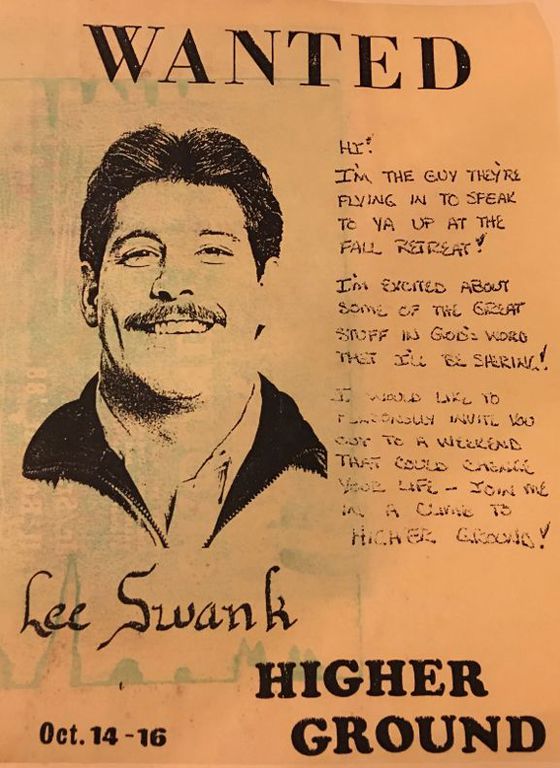 WANTED
HI!
I'M THE GUY THEY'RE
FLYING IN TO SPEAK
TO YA UP AT THE
FALL RETREAT!
I'M EXCITED ABOUT
SOME OF THE GREAT
STUFF IN GOD'S WORD
THAT I'LL BE SHARING!
I WOULD LIKE TO
PERSONALLY INVITE YOU
OUT TO A WEEKEND
THAT COULD CHANGE
YOUR LIFE - JOIN ME
IN A CLIMB TO
HIGHER GROUND!
Lee Swank
HIGHER
GROUND
Oct. 14-16